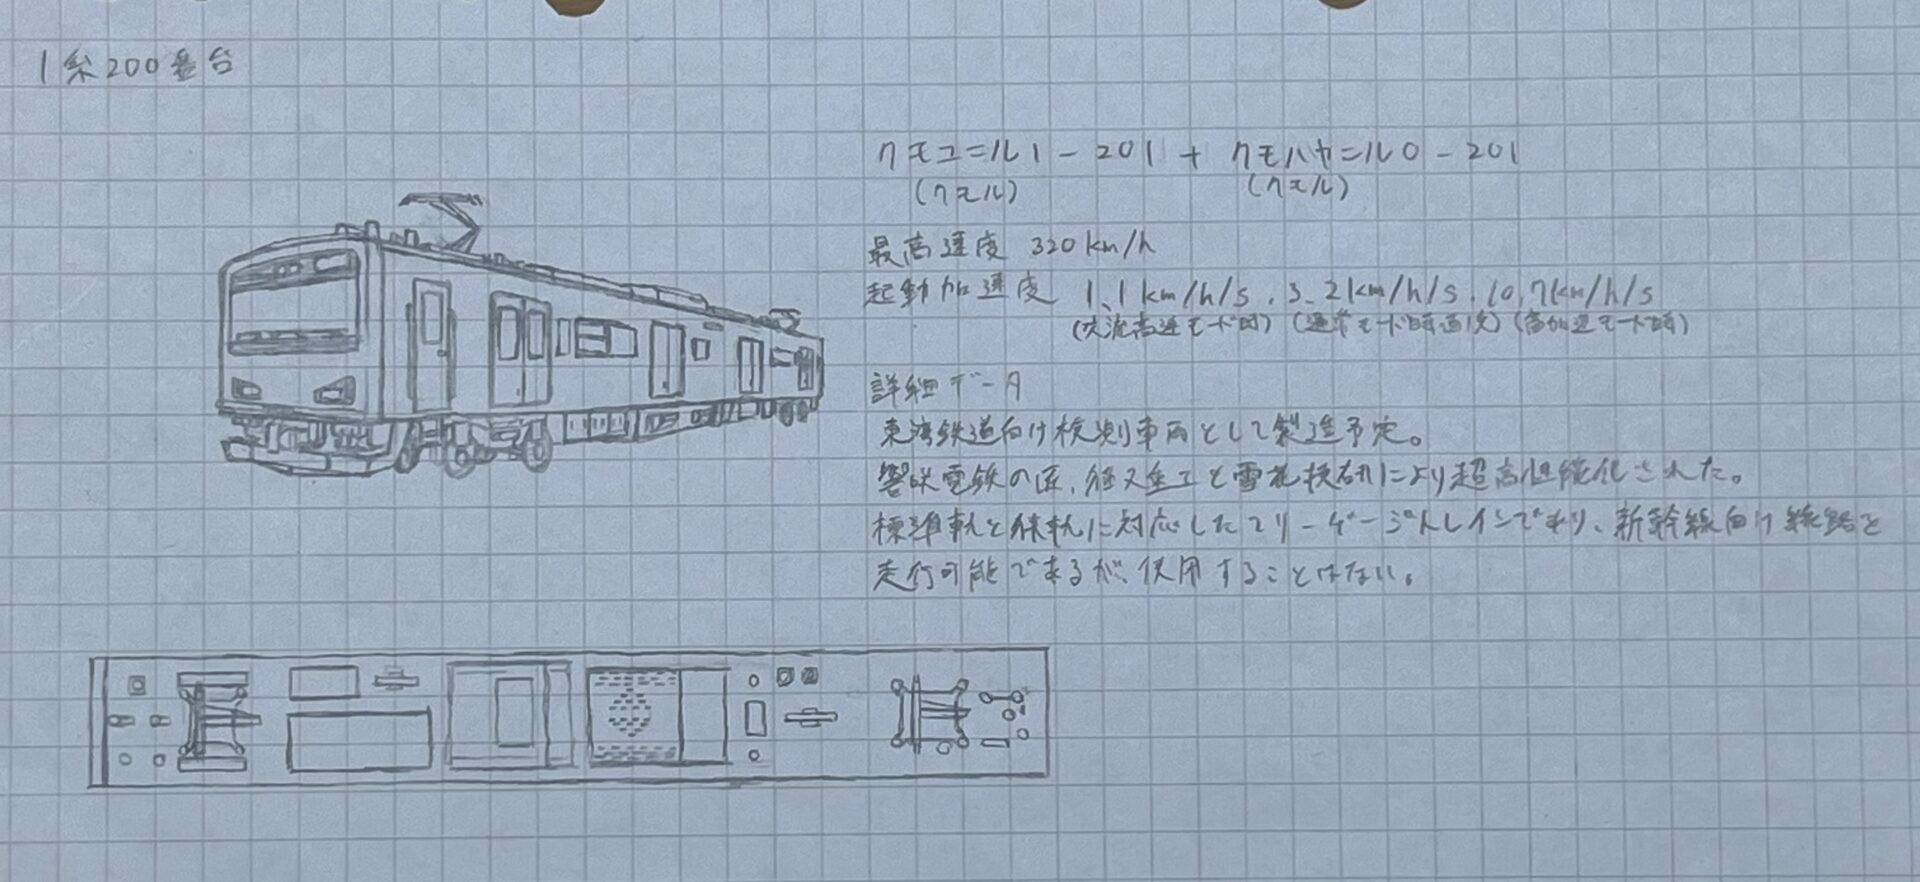 1系200番台
クモユニル1-201 + クモハヤニル0-201
(クモル) (クモル)
最高速度 320km/h
起動加速度 1.1km/h/s、3.2km/h/s、10.7km/h/s
(高速モード時) (通常モード時) (高加速モード時)
詳細データ
東海鉄道向け検測車両として製造予定。
電鉄の匠、と雪花技研により超高性能化された。
標準軌と狭軌に対応したフリーゲージトレインであり、新幹線向け線路を
走行可能であるが、使用することはない。